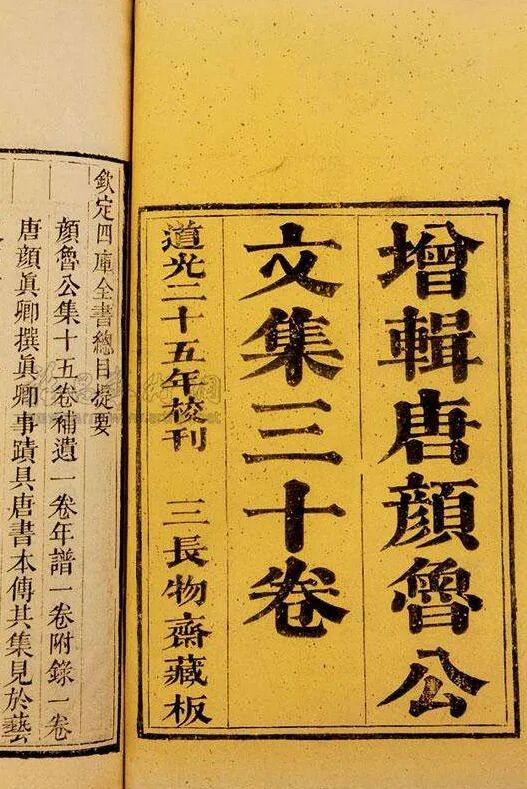 增輯唐顏魯公
文集三十卷
道光二十五年校刊 三長物齋藏板
欽定四庫全書總目提要
顏魯公集十五卷補遺一卷年譜一卷附錄一卷
唐顏眞卿撰眞卿事蹟具唐書本傳其集見於藝